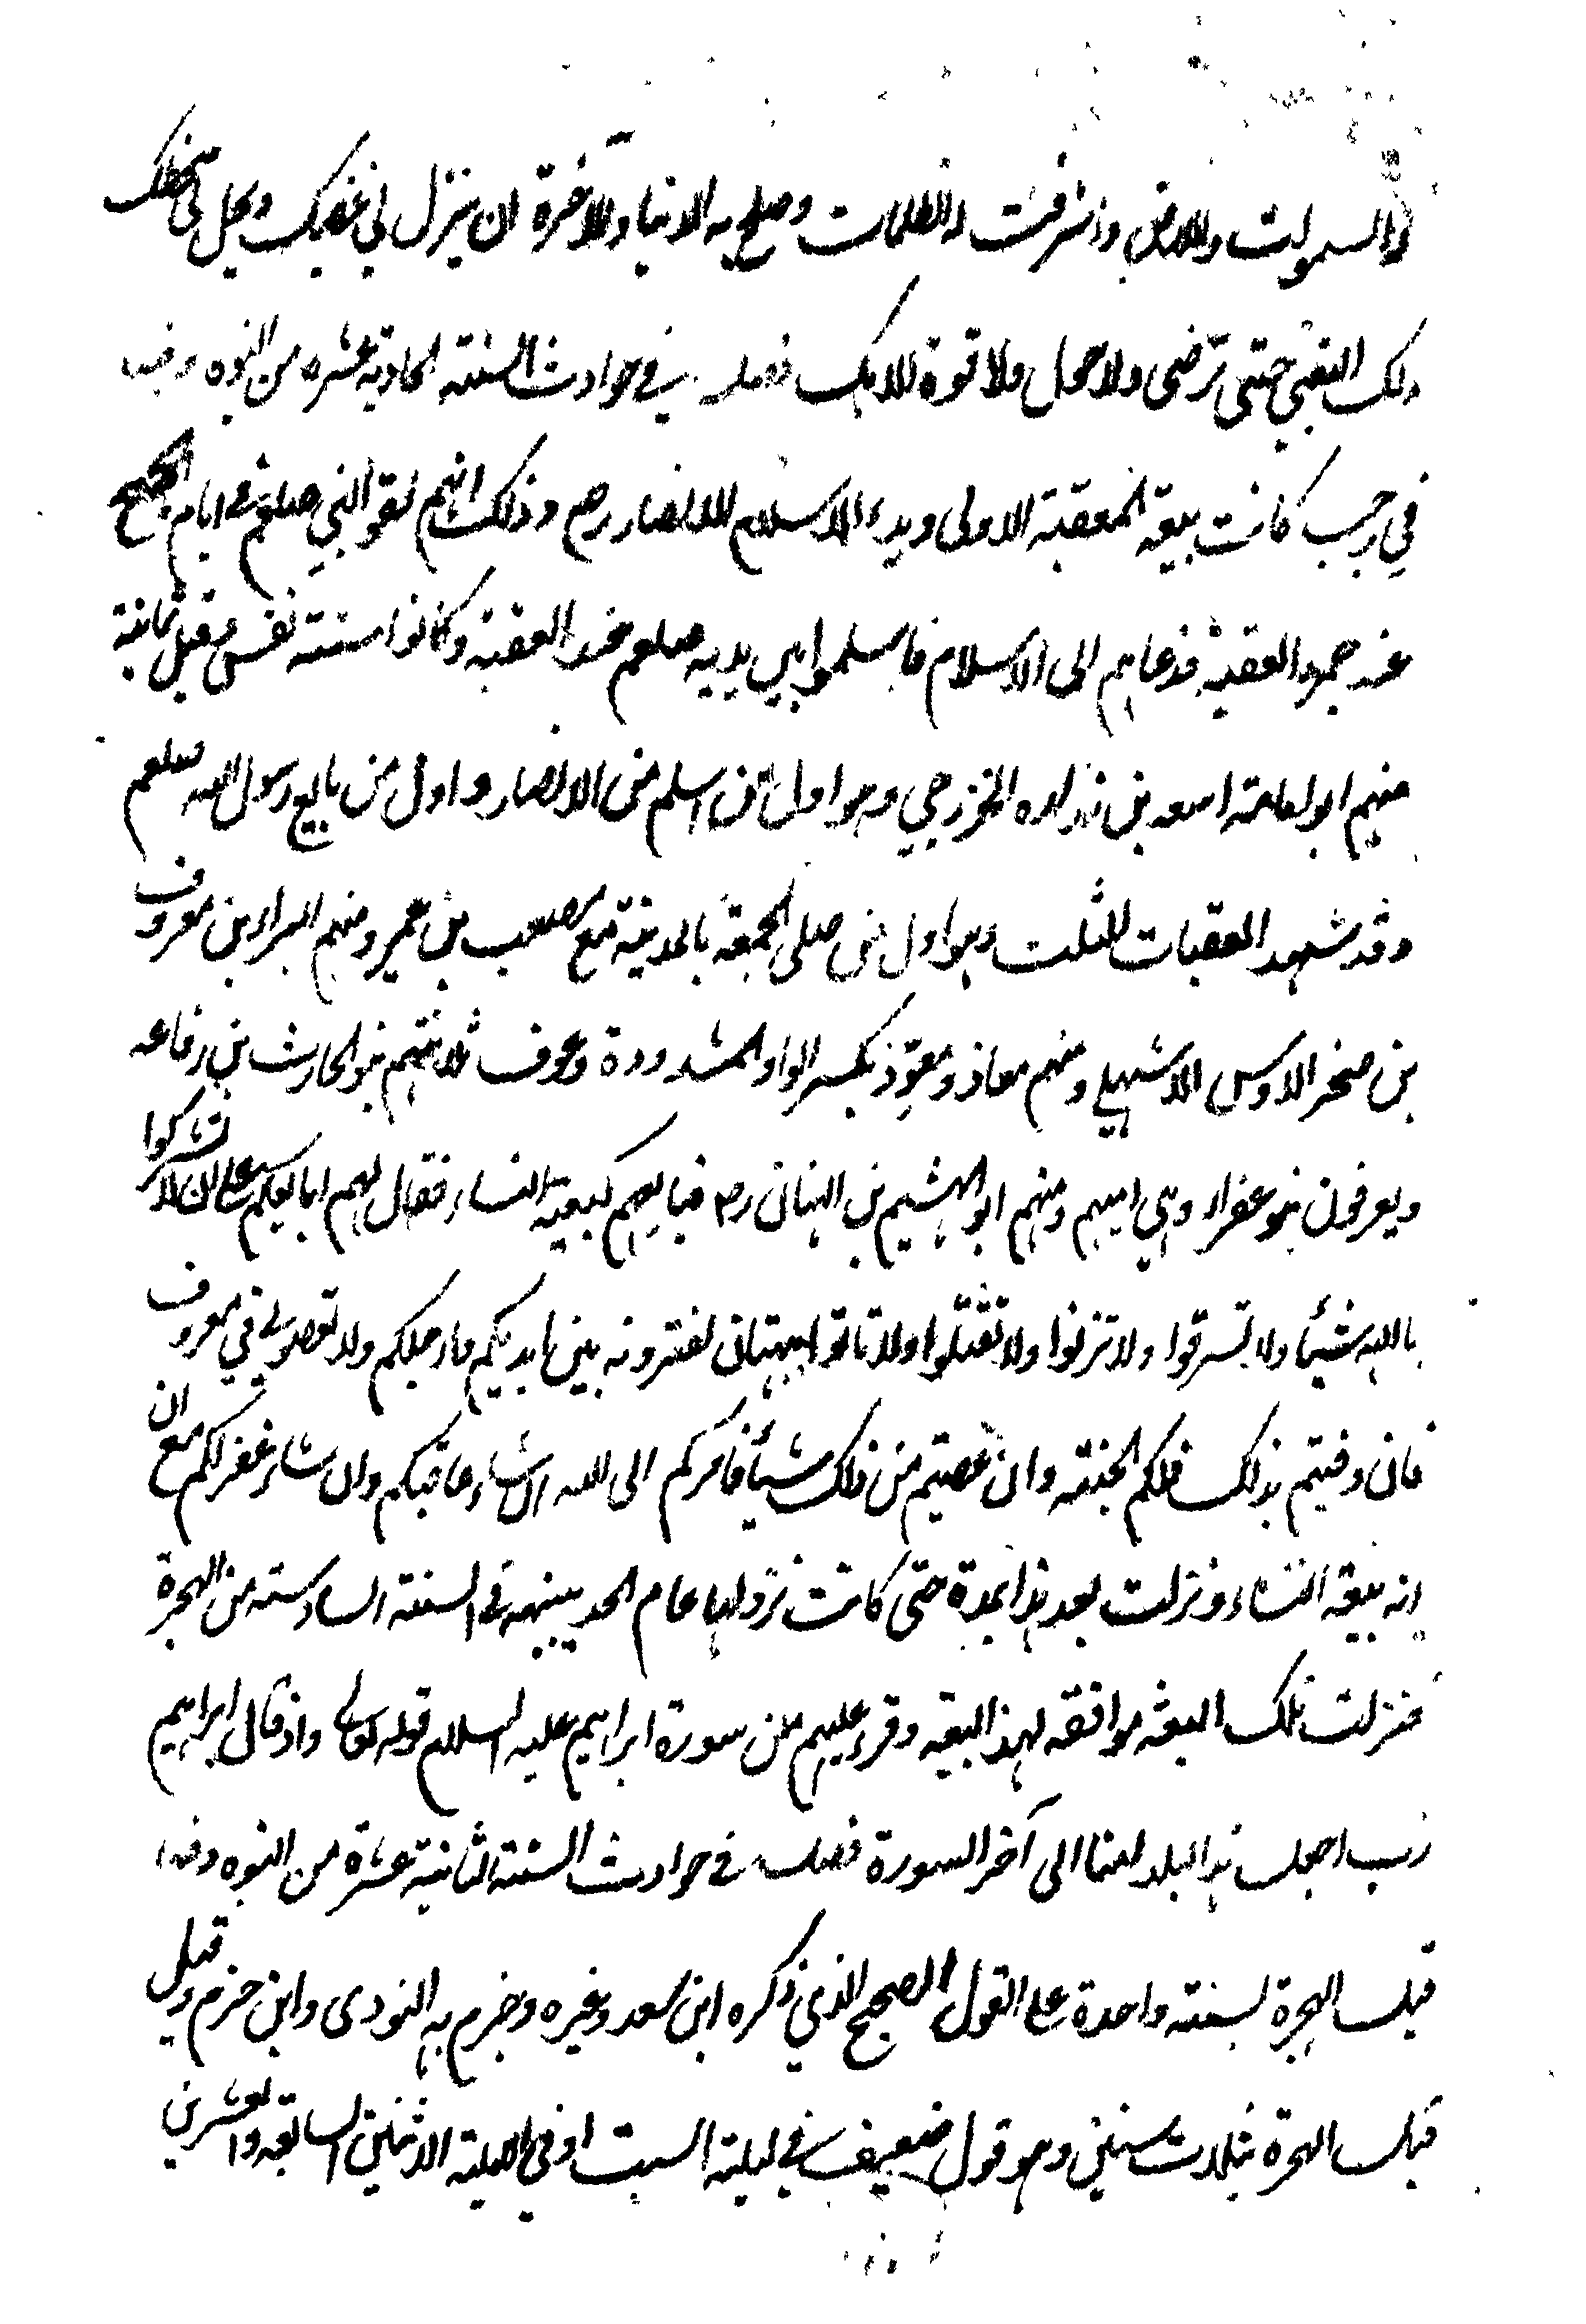 السموات والارض واشرقت له الظلمات وصلح به الدنيا والآخرة ان ينزل بي غضبك ويحل بي سخطك
ولك العتبى حتى ترضى ولا حول ولا قوة الا بك فصل في حوادث السنة الحادية عشره من النبوه وفيها
في رجب كانت بيعة العقبة الاولى وبدء الاسلام للانصار رضم وذلك انهم لقوا النبي صلعم في ايام الحج
عند جمرة العقبة فدعاهم الى الاسلام فاسلموا بين يديه صلعم عند العقبة وكانوا ستة نفس وقيل ثمانية
منهم ابو امامة اسعد بن زراره الخزرجي وهو اول من اسلم من الانصار واول من بايع رسول الله صلعم
وقد شهد العقبات الثلث وهو اول من صلى الجمعة بالمدينة مع مصعب بن عمير ومنهم البراء بن معروف
بن صخر الاوس الاشهلي ومنهم معاذ ومعوِّذ بكسر الواو المشدودة وعوف ثلاثتهم بنو الحارث بن رفاعه
ويعرفون ببنو عفراء وهي امهم ومنهم ابو الهشيم بن التهان رضه فبايعهم كبيعة النساء فقال لهم ابايعكم على ان لا تشركوا
بالله شيئا ولا تسرقوا ولا تزنوا ولا تقتلوا ولا تاتوا ببهتان تفترونه بين ايديكم وارجلكم ولا تعصوني في معروف
فان وفيتم بذلك فلكم الجنة وان عصيتم من ذلك شيئا فامركم الى الله ان شاء عاقبكم وان شاء غفر لكم مع ان
انه بيعة النساء ونزلت بعد هذا بمدة حتى كانت نزولها عام الحديبيه في السنة السادسة من الهجرة
فنزلت تلك البيعة موافقه لهذا البيعه وقرء عليهم من سورة ابراهيم عليه السلام قوله تعالى واذ قال ابراهيم
رب اجعل هذا البلد امنا الى آخر السورة فصل في حوادث السنة الثانية عشرة من النبوه وفيها
قبل الهجرة بسنة واحدة على القول الصحيح الذي ذكره ابن سعد وغيره وجزم به النووى وابن حزم وقيل
قبل الهجرة بثلاث سنين وهو قول ضعيف في ليلة السبت او في الليلة الاثنين السابعة والعشرين